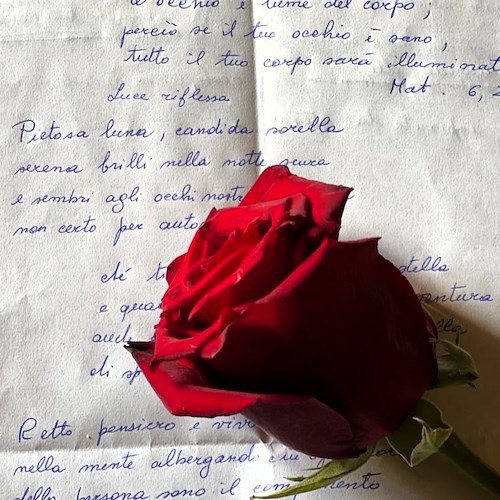 occhio è lume del corpo ;
perciò se il tuo occhio è sano,
tutto il tuo corpo sarà illuminat
Mat. 6, 2
Luce riflessa
Pietosa luna, candida sorella
serena brilli nella notte scura
e sembri agli occhi nostr
non certo per auto
Ché t stella
e qua ventura
di sp
Retto pensiero e viv
nella mente albergando che
della persona sono il com mento